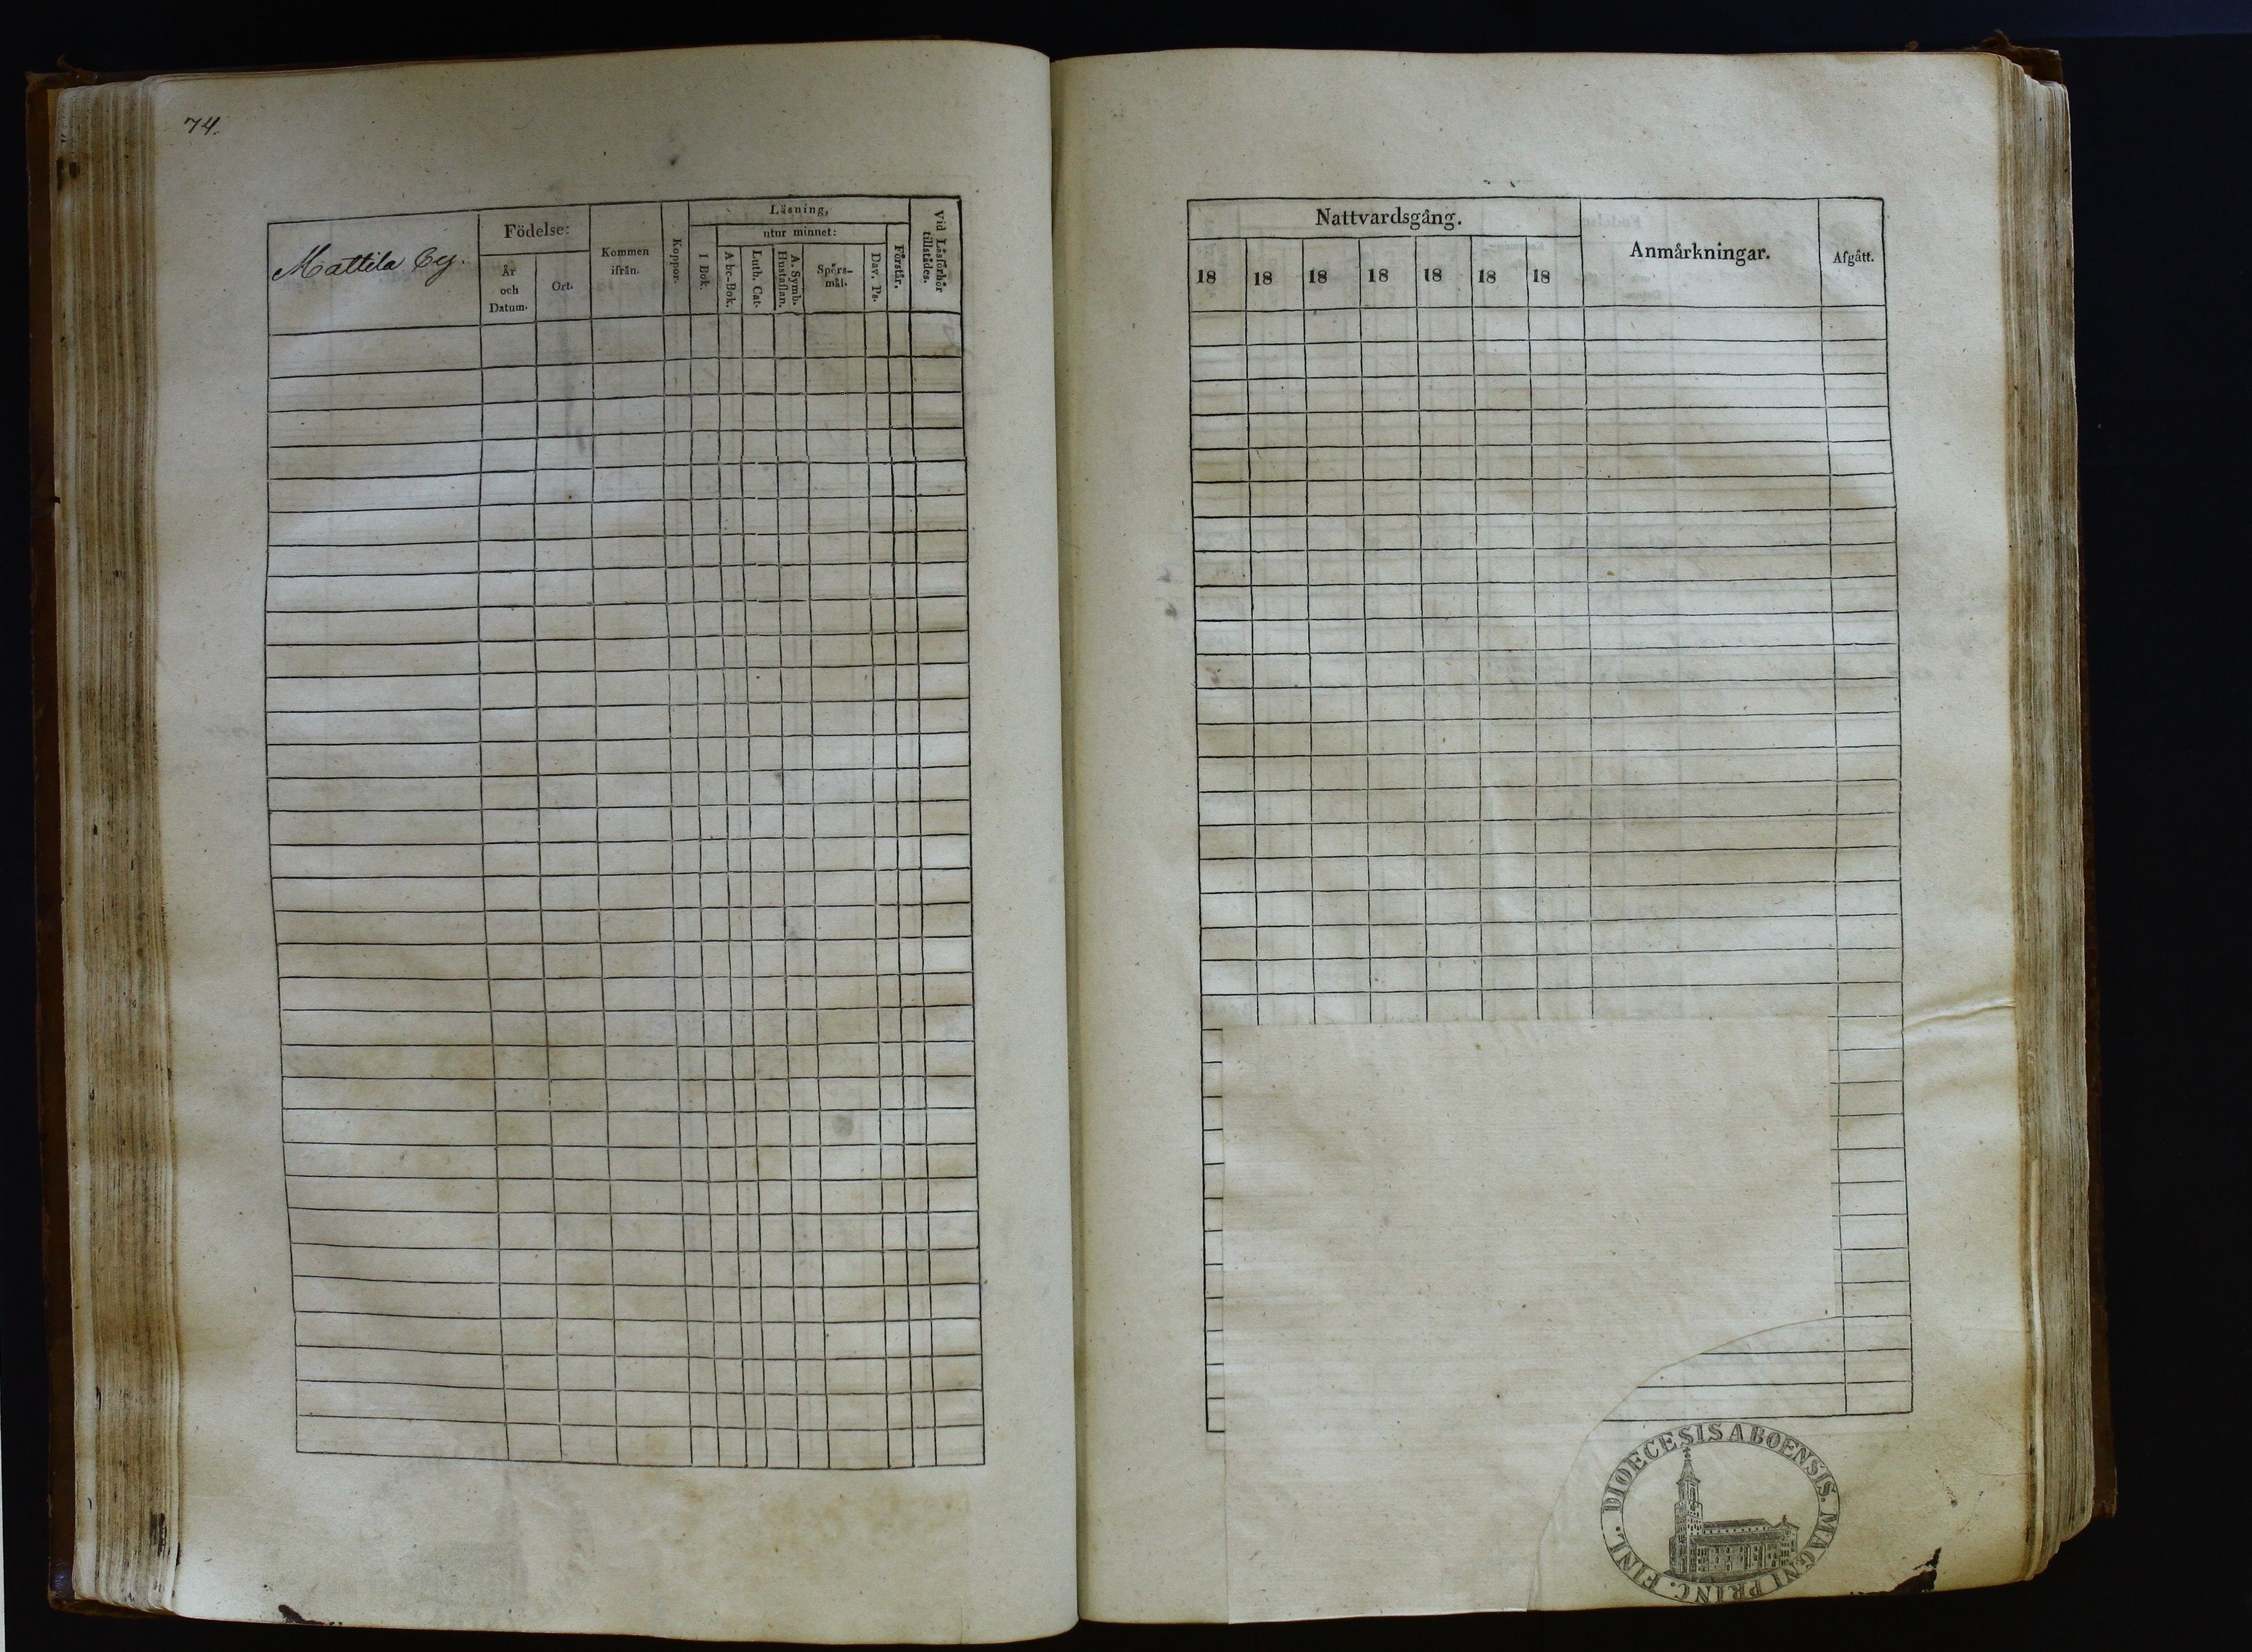 74.
Mattila By.
Födelse:
År
och
Datum.
Ort.
Kommen
ifrån.
Koppor.
Läsning,
utur minnet:
I Bok.
Abc-Bok.
Luth. Cat.
A. Symb.
Hustaflan.
Spörs-
mål.
Dav. Ps.
Förstår.
Vid Läsförhör
tillstädes.
Nattvardsgång.
18 18 18 18 18 18 18
Anmärkningar.
Afgått.
DIOECESIS ABOENSIS. MAGNI PRINC. FINL.